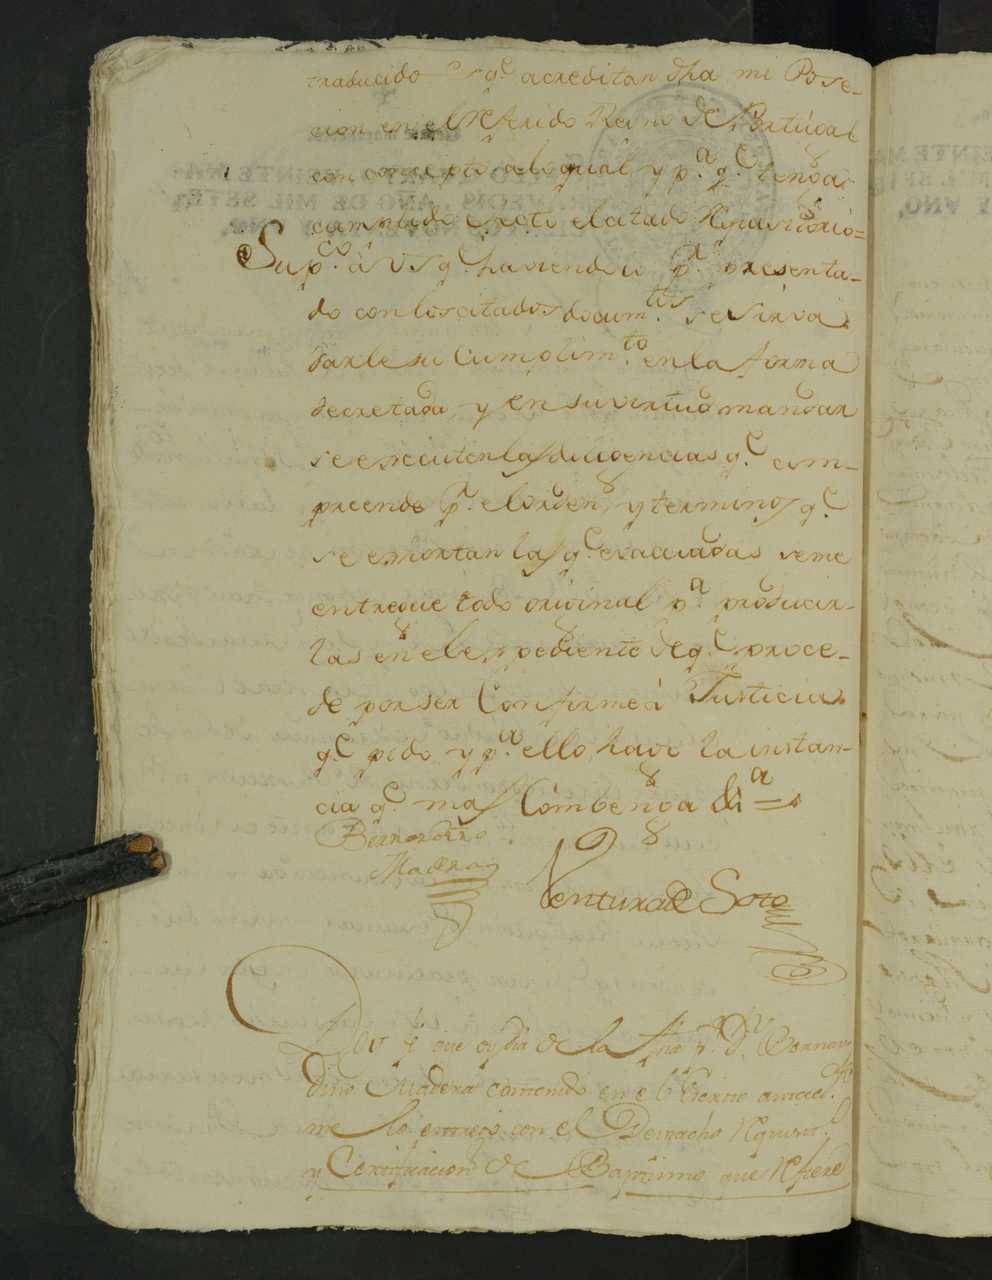 traducido, y q.e acreditan dha mi Pose-
cion en el referido Reino de Portugal
con concepto a lo qual y p.a q.e tenga
cumplido efecto el citado Requisitorio=
Sup.co à VS q.e haviendolo p.r presenta-
do con los citados docum.tos se sirva
darle su Cumplim.to en la forma
decretada, y en su virtud mandar
se executen las diligencias q.e com-
preende p.r el orden, y terminos q.e
se exortan las q.e evacuadas se me
entregue todo original p.a producir-
las en el expediente de q.e proce-
de por ser Conforme à Justicia
q.e pido, y p.a ello, hago la instan-
cia q.e mas Combenga &a=
Bernardino
Madera
Ventura de Soto
Doy fe que oy dia de la fha D.n Bernar-
dino Madera contenido en el Escrito anteced.te
me lo entregó con el Despacho Requisit.o
y Certificacion de Baptismo que refiere